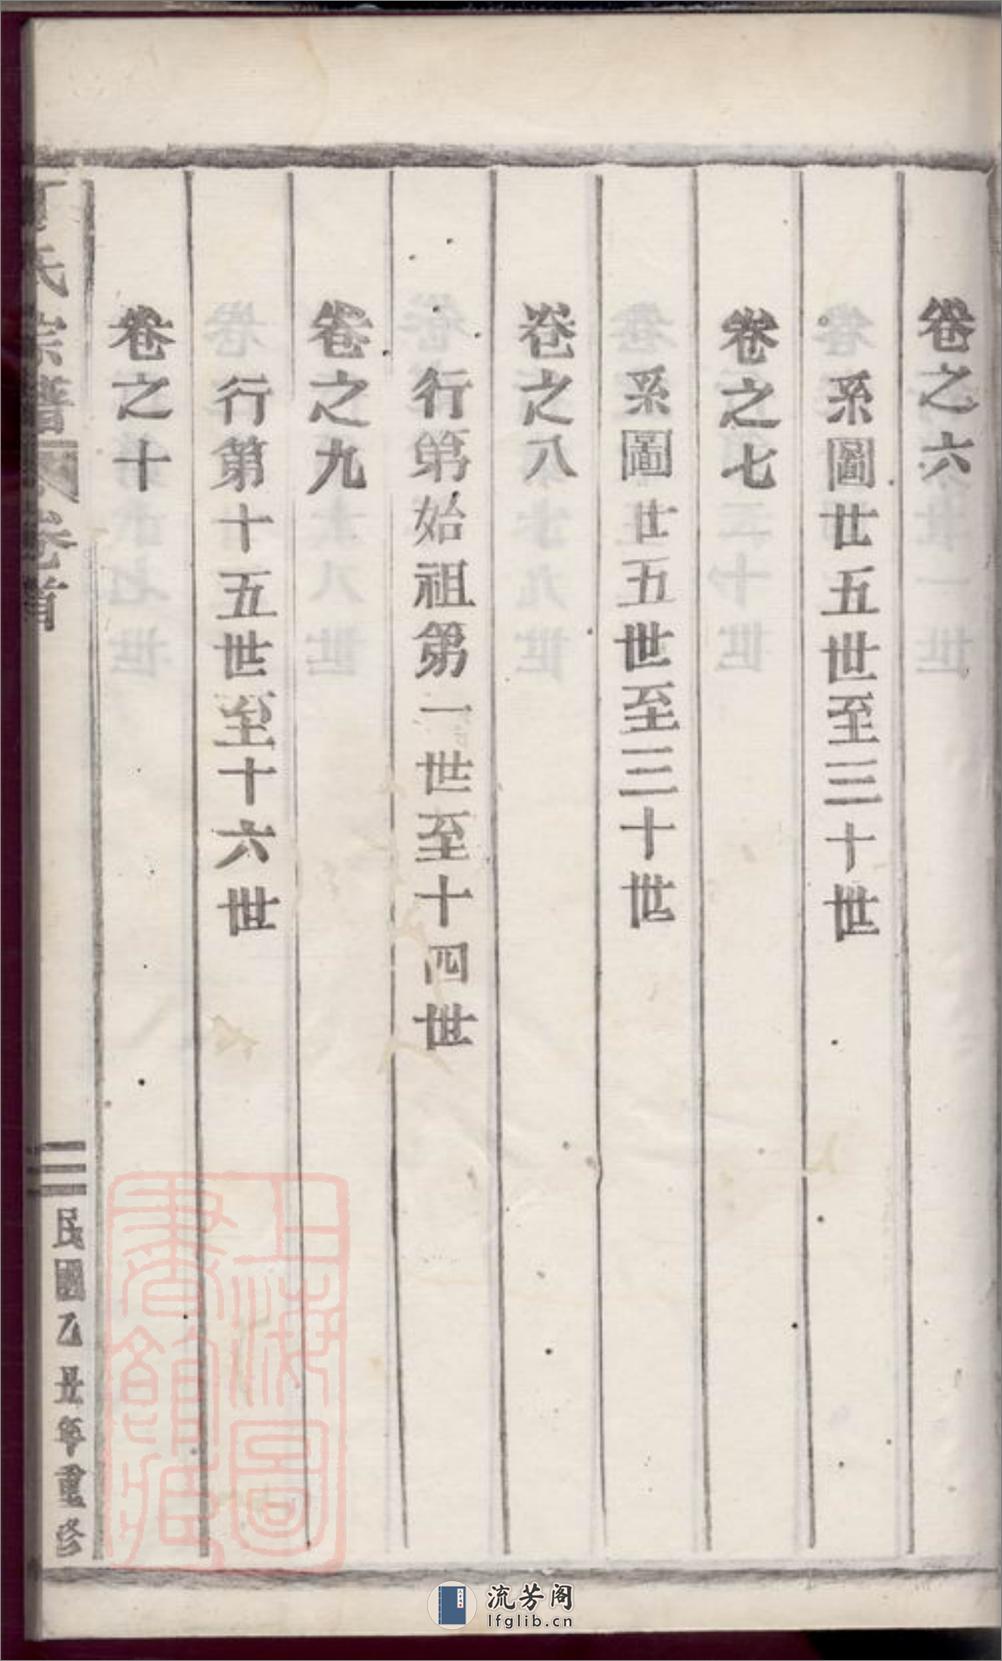 卷之六
系圖廿五世至三十世
卷之七
系圖廿五世至三十世
卷之八
行第始祖第一世至十四世
卷之九
行第十五世至十六世
卷之十
氏宗譜
卷首
二
民國乙丑年重修
上海圖書館藏
流芳阁
lfglib.cn